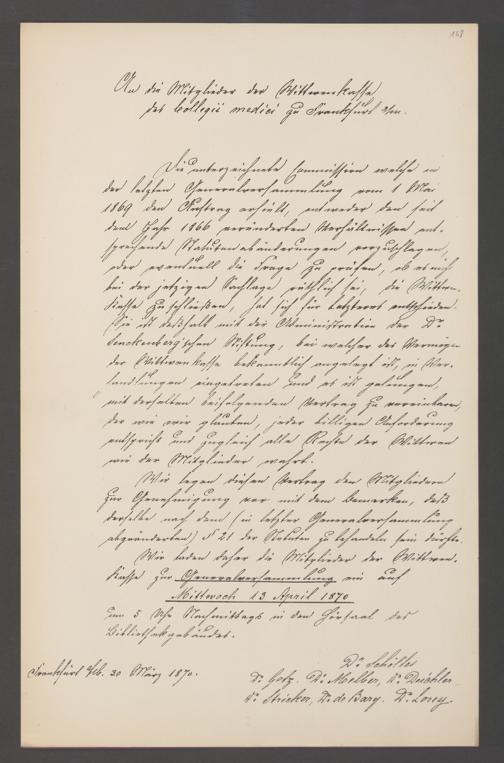 168
An die Mitglieder der Wittwenkasse
des Collegii medici zu Frankfurt a/m.
Die unterzeichnete Commission welche in
der letzten Generalversammlung vom 1 Mai
1869 den Auftrag erhielt, entweder den seit
dem Jahr 1866 veränderten Verhältnissen ent-
sprechende Statutenabänderungen vorzuschlagen,
oder eventuell die Frage zu prüfen, ob es nicht
bei der jetzigen Sachlage räthlich sei, die Wittwen-
kasse zu schließen, hat sich für Letzteres entschieden.
Sie ist deßhalb mit der Administration der Dr
Senckenberg'schen Stiftung, bei welcher das Vermögen
der Wittwenkasse bekanntlich angelegt ist, in Ver-
handlungen eingetreten und es ist gelungen,
mit derselben beifolgenden Vertrag zu vereinbaren,
der wie wir glauben, jeder billigen Anforderung
entspricht und zugleich alle Rechte der Wittwen
wie der Mitglieder wahrt.
Wir legen diesen Vertrag den Mitgliedern
zur Genehmigung vor mit dem Bemerken, daß
derselbe nach dem (in letzter Generalversammlung
abgeänderten) § 21 der Statuten zu behandeln sein dürfte.
Wir laden daher die Mitglieder der Wittwen-
kasse zur Generalversammlung ein auf
Mittwoch 13 April 1870
um 5 Uhr Nachmittags in den Hörsaal des
Bibliothekgebäudes.
Frankfurt 30 März 1870.
Dr Schölles
Dr Getz. Dr Melber, Dr Deichler
Dr Stricker, Dr de Bary. Dr Lorey